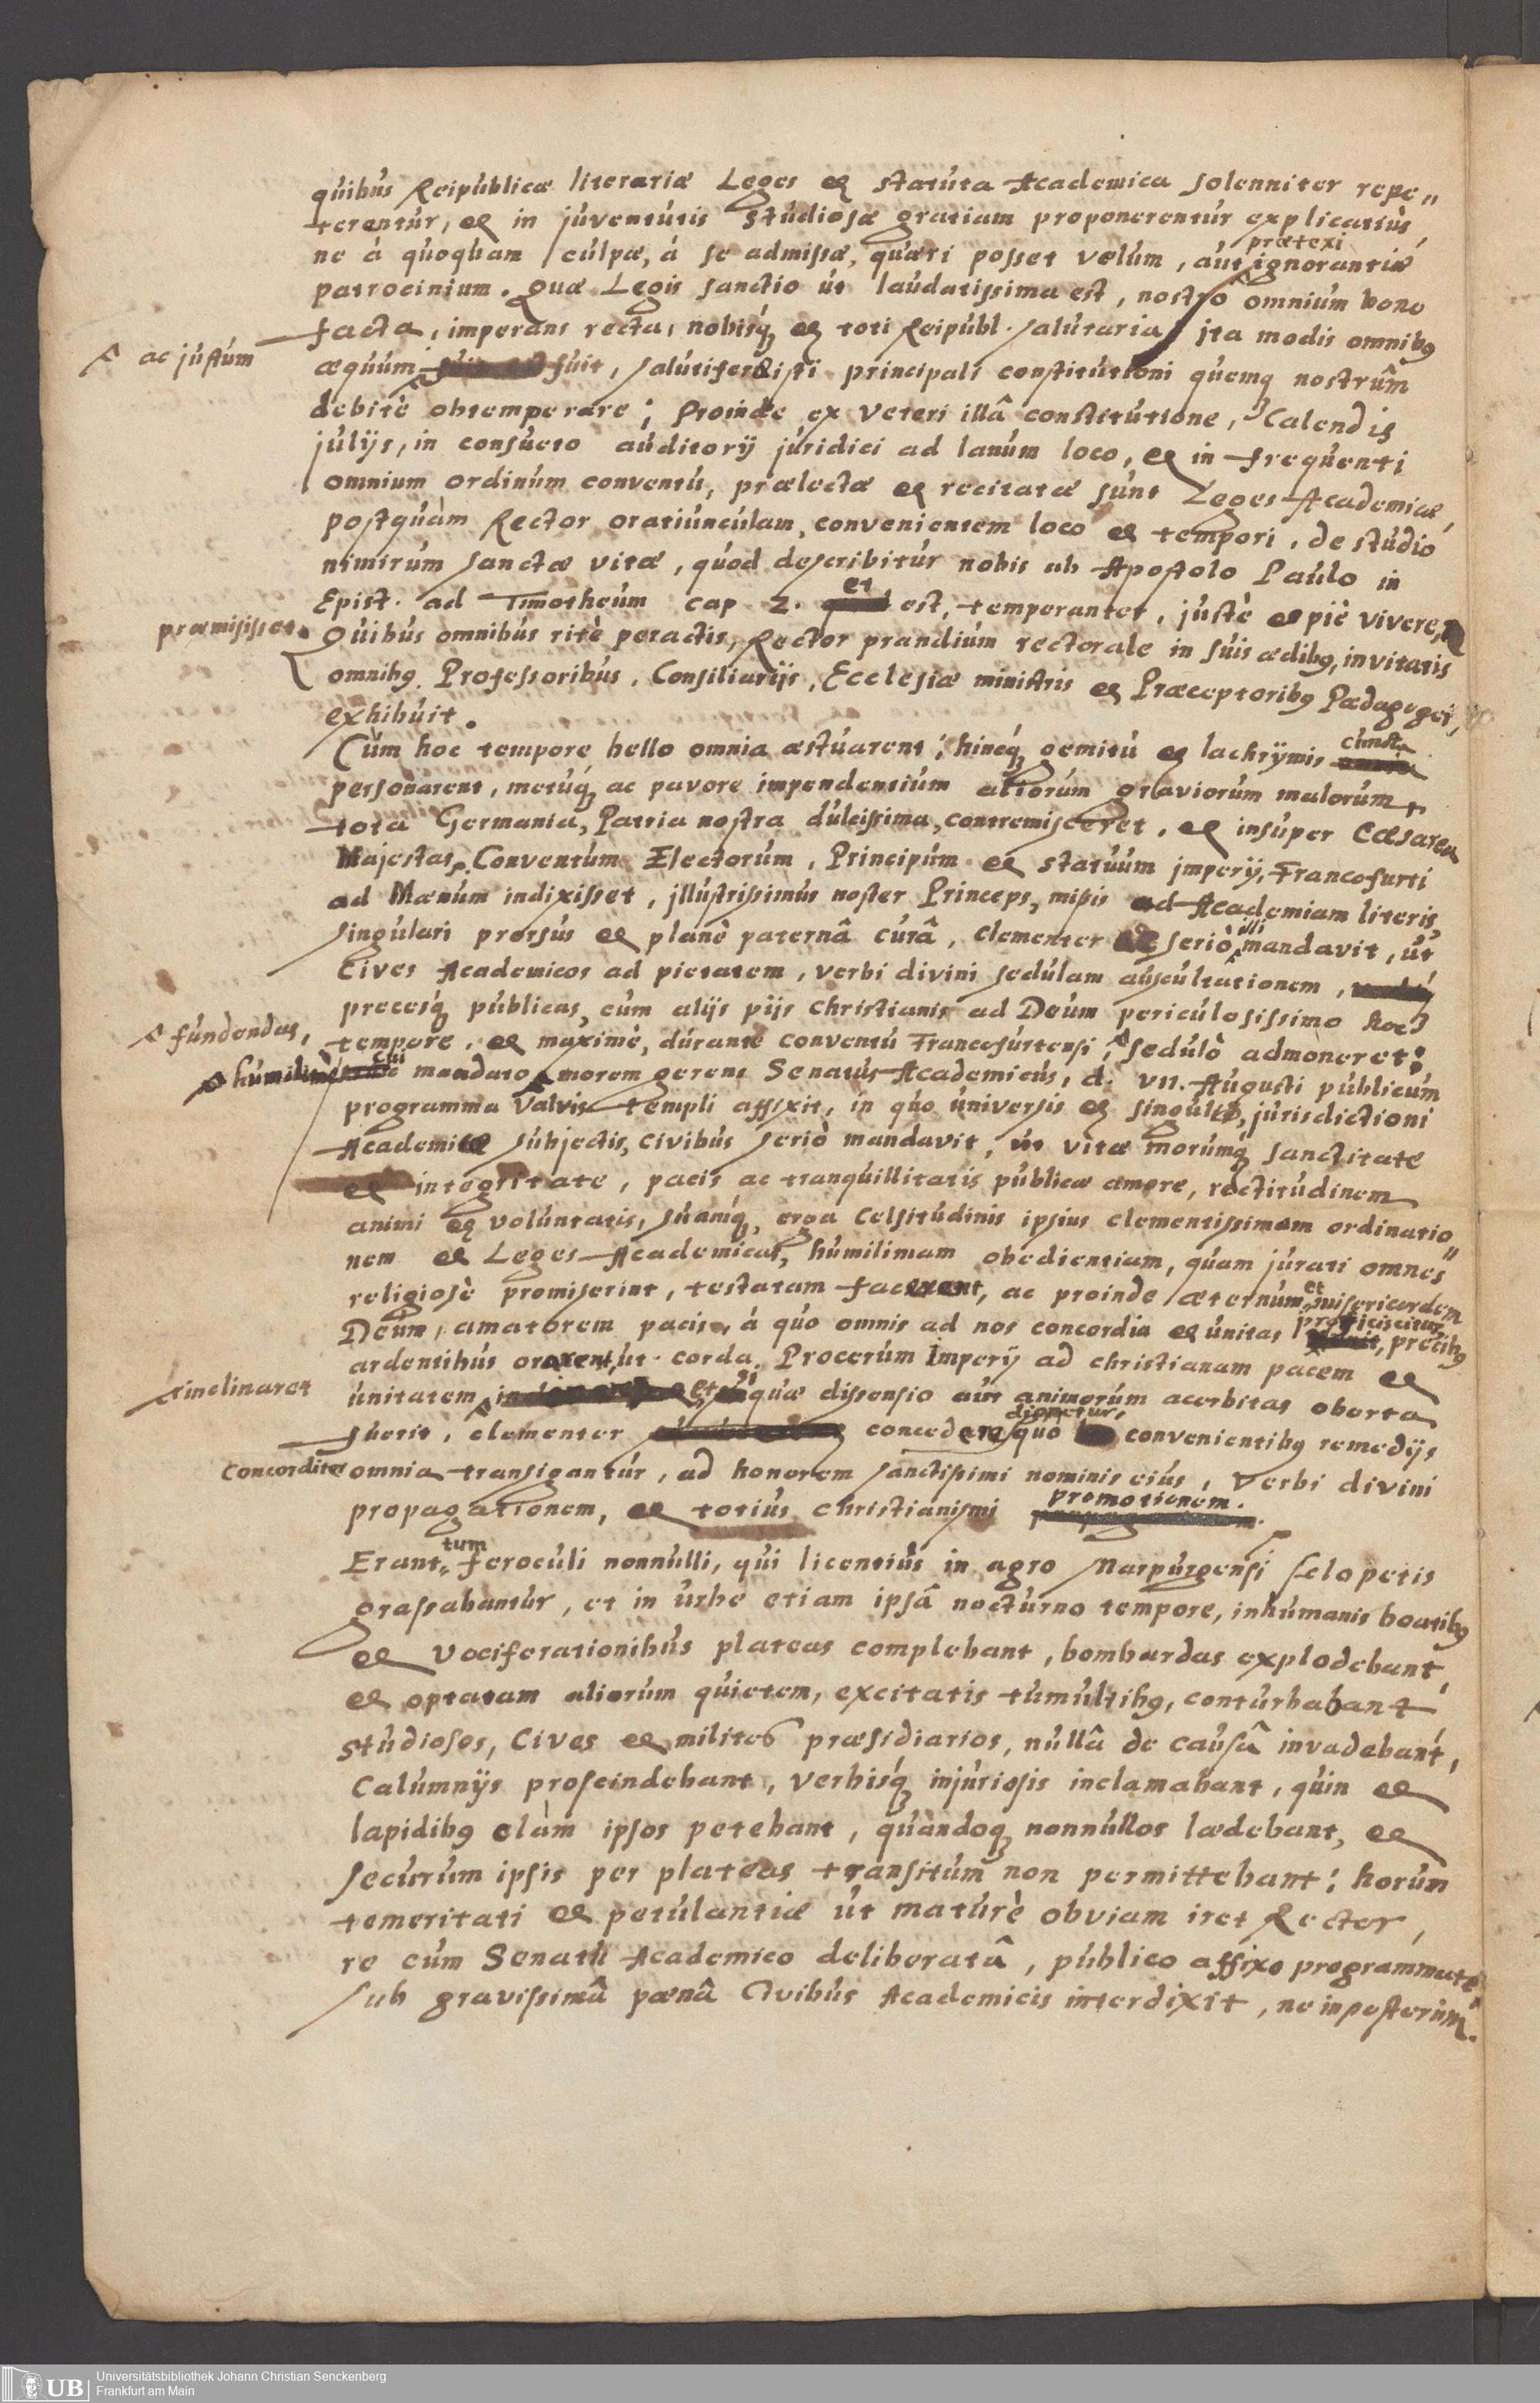 quibus Reipublicæ literariæ Leges et statuta Academica solenniter repe„
terentur, et in juventutis studiosæ gratiam proponerentur explicatiùs,
prætexi
ne à quoquam culpæ, à se admissæ, quæri posset velum, aut ignorantiæ
patrocinium. Quæ Legis sanctio ut laudatissima est, nostro omnium bono
facta, imperans recta, nobisq; et toti Reipubl. salutaria, ita modis omnibq
ac justum
æquum fuit, salutiferæ isti principali constitutioni quemq nostrûm
debitè obtemperare; Proinde ex veteri illâ constitutione, Calendis
julijs, in consueto auditorij juridici ad lanum loco, et in frequenti
omnium ordinum conventu, prælectæ et recitatæ sunt Leges Academicæ,
postquàm Rector oratiunculam, convenientem loco et tempori, de studio
nimirum sanctæ vitæ, quod describitur nobis ab Apostolo Paulo in
et
Epist. ad Timotheum cap 2. est, temperanter, justè et piè vivere,
præmisisset.
Quibus omnibus ritè peractis, Rector prandium rectorale in suis ædibq, invitatis
omnibq Professoribus, Consiliarijs, Ecclesiæ ministris et Præceptoribq Pædagogei,
exhibuit.
Cùm hoc tempore bello omnia æstuarent, hincq; gemitu et lachrÿmis cuncta
personarent, metuq; ac pavore impendentium atrorum graviorum malorum
tota Germania, Patria nostra dulcissima, contremisceret, et insuper Cæsarea
Majestas, Conventum Electorum, Principum et statuum imperij, Francofurti
ad Mænum indixisset, illustrissimus noster Princeps, missis ad Academiam literis,
illi
singulari prorsus et planè paternâ curâ, clementer et seriò mandavit, ut
Cives Academicos ad pietatem, verbi divini sedulam auscultationem,
precesq; publicas, cum alijs pijs christianis ad Deum periculosissimo hoc
fundendas,
tempore, et maximè, durante conventu Francofurtensi, sedulò admoneret:
humilimè
cui
mandato morem gerens Senatus Academicus, d. VII. Augusti publicum
programma valvis templi affixit, in quo universis et singulis, jurisdictioni
Academicæ subjectis, civibus seriò mandavit, ut vitæ morumq; sanctitate
et integritate, pacis ac tranquillitatis publicæ amore, rectitudinem
animi et voluntatis, suamq; erga Celsitudinis ipsius clementissimam ordinatio„
nem et Leges Academicas, humilimam obedientiam, quam jurati omnes
religiosè promiserint, testatam facerent, ac proinde æternum et misericordem
Deum, amatorem pacis, à quo omnis ad nos concordia et unitas proficiscitur, precibq
ardentibus orarent, ut corda Procerum Imperij ad christianam pacem et
inclinaret
unitatem et, si quæ dissensio aut animorum acerbitas oborta
dignetur,
fuerit, clementer concedere quo convenientibq remedijs
concorditer omnia transigantur, ad honorem sanctissimi nominis eius, verbi divini
propagationem, et totius christianismi promotionem.
tum
Erant feroculi nonnulli, qui licentiùs in agro Marpurgensi sclopetis
grassabantur, et in urbe etiam ipsâ nocturno tempore, inhumanis boatibq
et vociferationibus plateas complebant, bombardas explodebant,
et optatam aliorum quietem, excitatis tumultibq, conturbabant
Studiosos, Cives et milites præsidiarios, nullâ de causâ invadebant,
Calumnijs proscindebant, verbisq; injuriosis inclamabant, quin et
lapidibq clàm ipsos petebant, quandoq; nonnullos lædebant, et
securum ipsis per plateas transitum non permittebant; horum
temeritati et petulantiæ ut maturè obviam iret Rector,
re cum Senatu Academico deliberatâ, publico affixo programmate,
sub gravissimâ pœnâ Civibus Academicis interdixit, ne inposterum.
UB Universitätsbibliothek Johann Christian Senckenberg
Frankfurt am Main